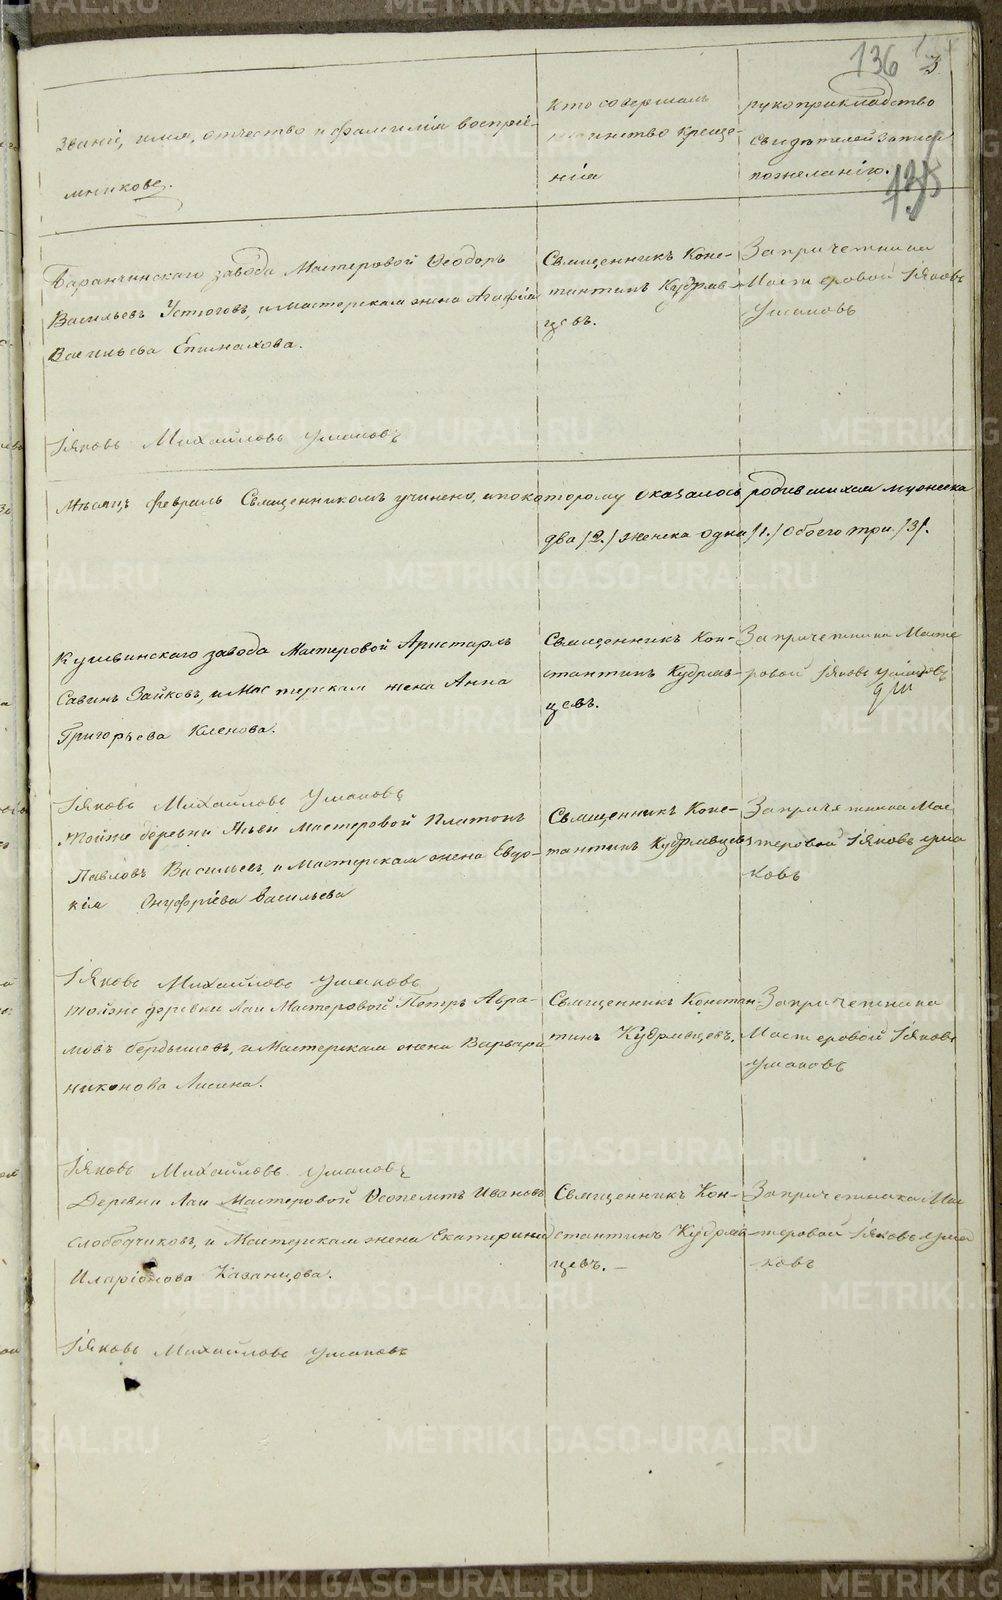 136 3
Званіе, имя, отчество и фамилія воспріе-
мниковъ.
Кто совершалъ
таинство креще-
нія
рукоприкладство
свидѣтелей записи
по желанію.
135
Баранчинскаго завода Мастеровой Ѳеодоръ
Васильевъ Устюговъ, и мастерская жена Агафія
Васильева Епинахова.
Священникъ Конс-
тантинъ Кудряв-
цевъ.
За причетника
Мастеровой Іяковъ
Ушаковъ
Іяковъ Михайловъ Ушаковъ
Мѣсяцъ февраль Священникомъ учинена, и по которому оказалось родившихся мужеска
два /2./ женска одна /1./ Обоего три /3/.
Кушвинскаго завода Мастеровой Аристархъ
Савинъ Зайковъ, и Мастерская жена Анна
Григорьева Кленова.
Священникъ Кон-
стантинъ Кудряв-
цевъ.
За причетника Масте
ровой Іяковъ Ушаковъ
Іяковъ Михайловъ Ушаковъ
тойже деревни Мастеровой Платонъ
Павловъ Васильевъ, и Мастерская жена Евдо-
кія Онуфріева Васильева
Священникъ Конс-
тантинъ Кудрявцевъ
За причетника Мас
теровой Іяковъ Уша
ковъ
Іяковъ Михайловъ Ушаковъ
тойже деревни Лаи Мастеровой Петръ Авра-
мовъ Бердышевъ, и Мастерская жена Варвара
Никонова Лисина.
Священникъ Констан-
тинъ Кудрявцевъ.
За причетника
Мастеровой Іяковъ
Ушаковъ
Іяковъ Михайловъ Ушаковъ
Деревни Лаи Мастеровой Ѳеопемтъ Ивановъ
Слободчиковъ, и Мастерская жена Екатерина
Иларіонова Казанцова.
Священникъ Кон-
стантинъ Кудряв
цевъ. —
За причетника Мас
теровой Іяковъ Уша
ковъ
Іяковъ Михайловъ Ушаковъ
METRIKI.GASO-URAL.RU